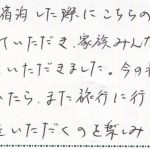 宿泊した際にこちらの
ていただき、家族みんな
いただきました。今の
いたら、また旅行に行
をいただくのを楽しみ